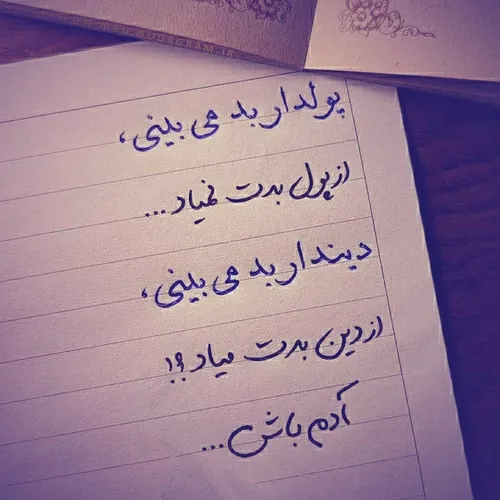 پولدار بد می بینی،
از پول بدت نمیاد...
دیندار بد می بینی،
از دین بدت میاد؟!
آدم باش...